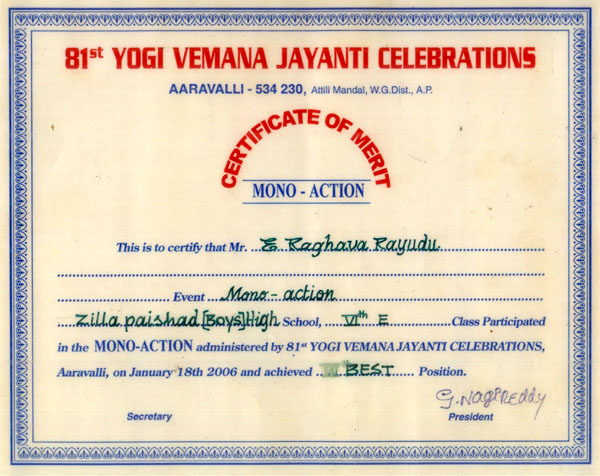 81st YOGI VEMANA JAYANTI CELEBRATIONS
AARAVALLI - 534 230, Attili Mandal, W.G.Dist., A.P.
CERTIFICATE OF MERIT
MONO - ACTION
This is to certify that Mr. E Raghava Rayudu
Event Mono - action
Zilla paishad [Boys] High School, VIth E Class Participated
in the MONO-ACTION administered by 81st YOGI VEMANA JAYANTI CELEBRATIONS,
Aaravalli, on January 18th 2006 and achieved BEST Position.
G. Nagi Reddy
Secretary President